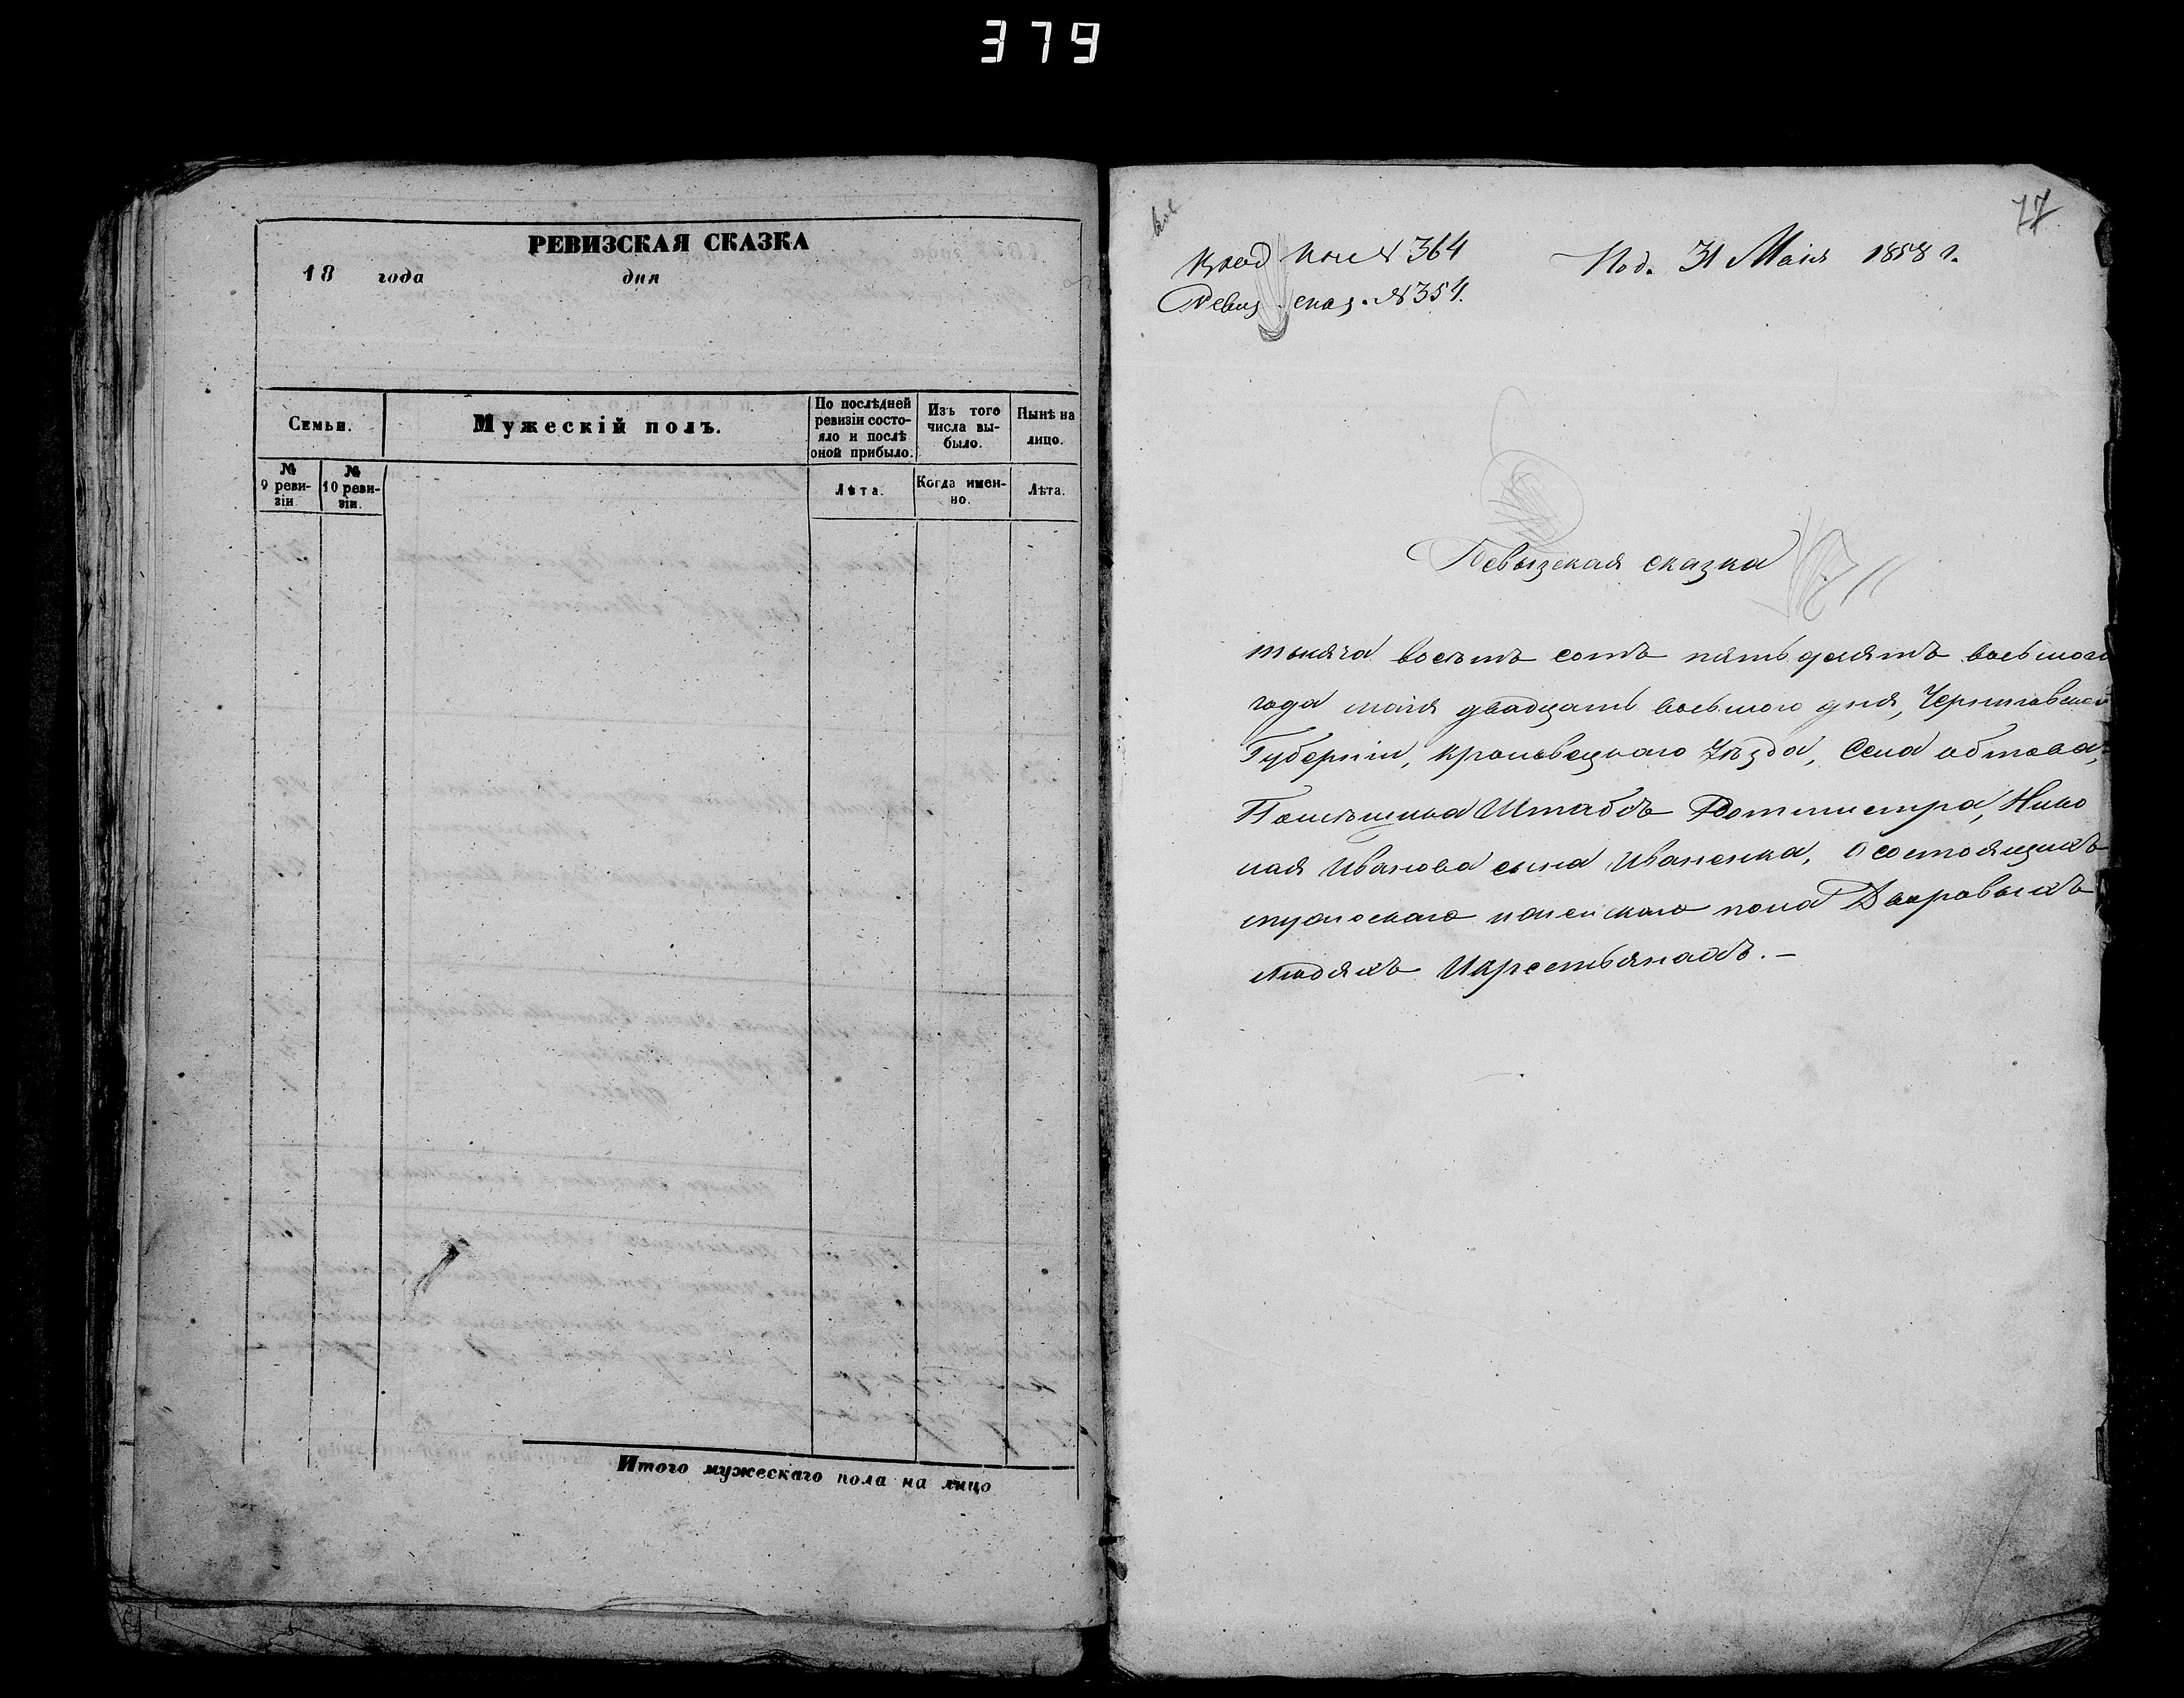 379
РЕВИЗСКАЯ СКАЗКА
18 года дня
Семьи.
Мужескій полъ.
По послѣдней ревизіи состо-
яло и послѣ
оной прибыло.
Изъ того
числа вы-
было.
Нынѣ на
лицо.
№
9 реви-
зіи
№
10 реви-
зіи.
Лѣта.
Когда имен-
но.
Лѣта.
Итого мужескаго пола на лицо
77
№ 364
Под. 31 Маія 1858 г.
Ревиз. сказ. № 354.
Ревызская сказка
тысяча восемъ сотъ пять десятъ восьмого
года маія двадцать восьмого дня, Черниговской
Губерніи, Кролевецкаго Уѣзда, Села обтова,
Помѣщика Штабсъ Ротмистра, Нико
лая Иванова сына Иваненка, О состоящихъ
мужескаго иженскаго пола Дворовыхъ
людяхъ Икрестьянахъ.-